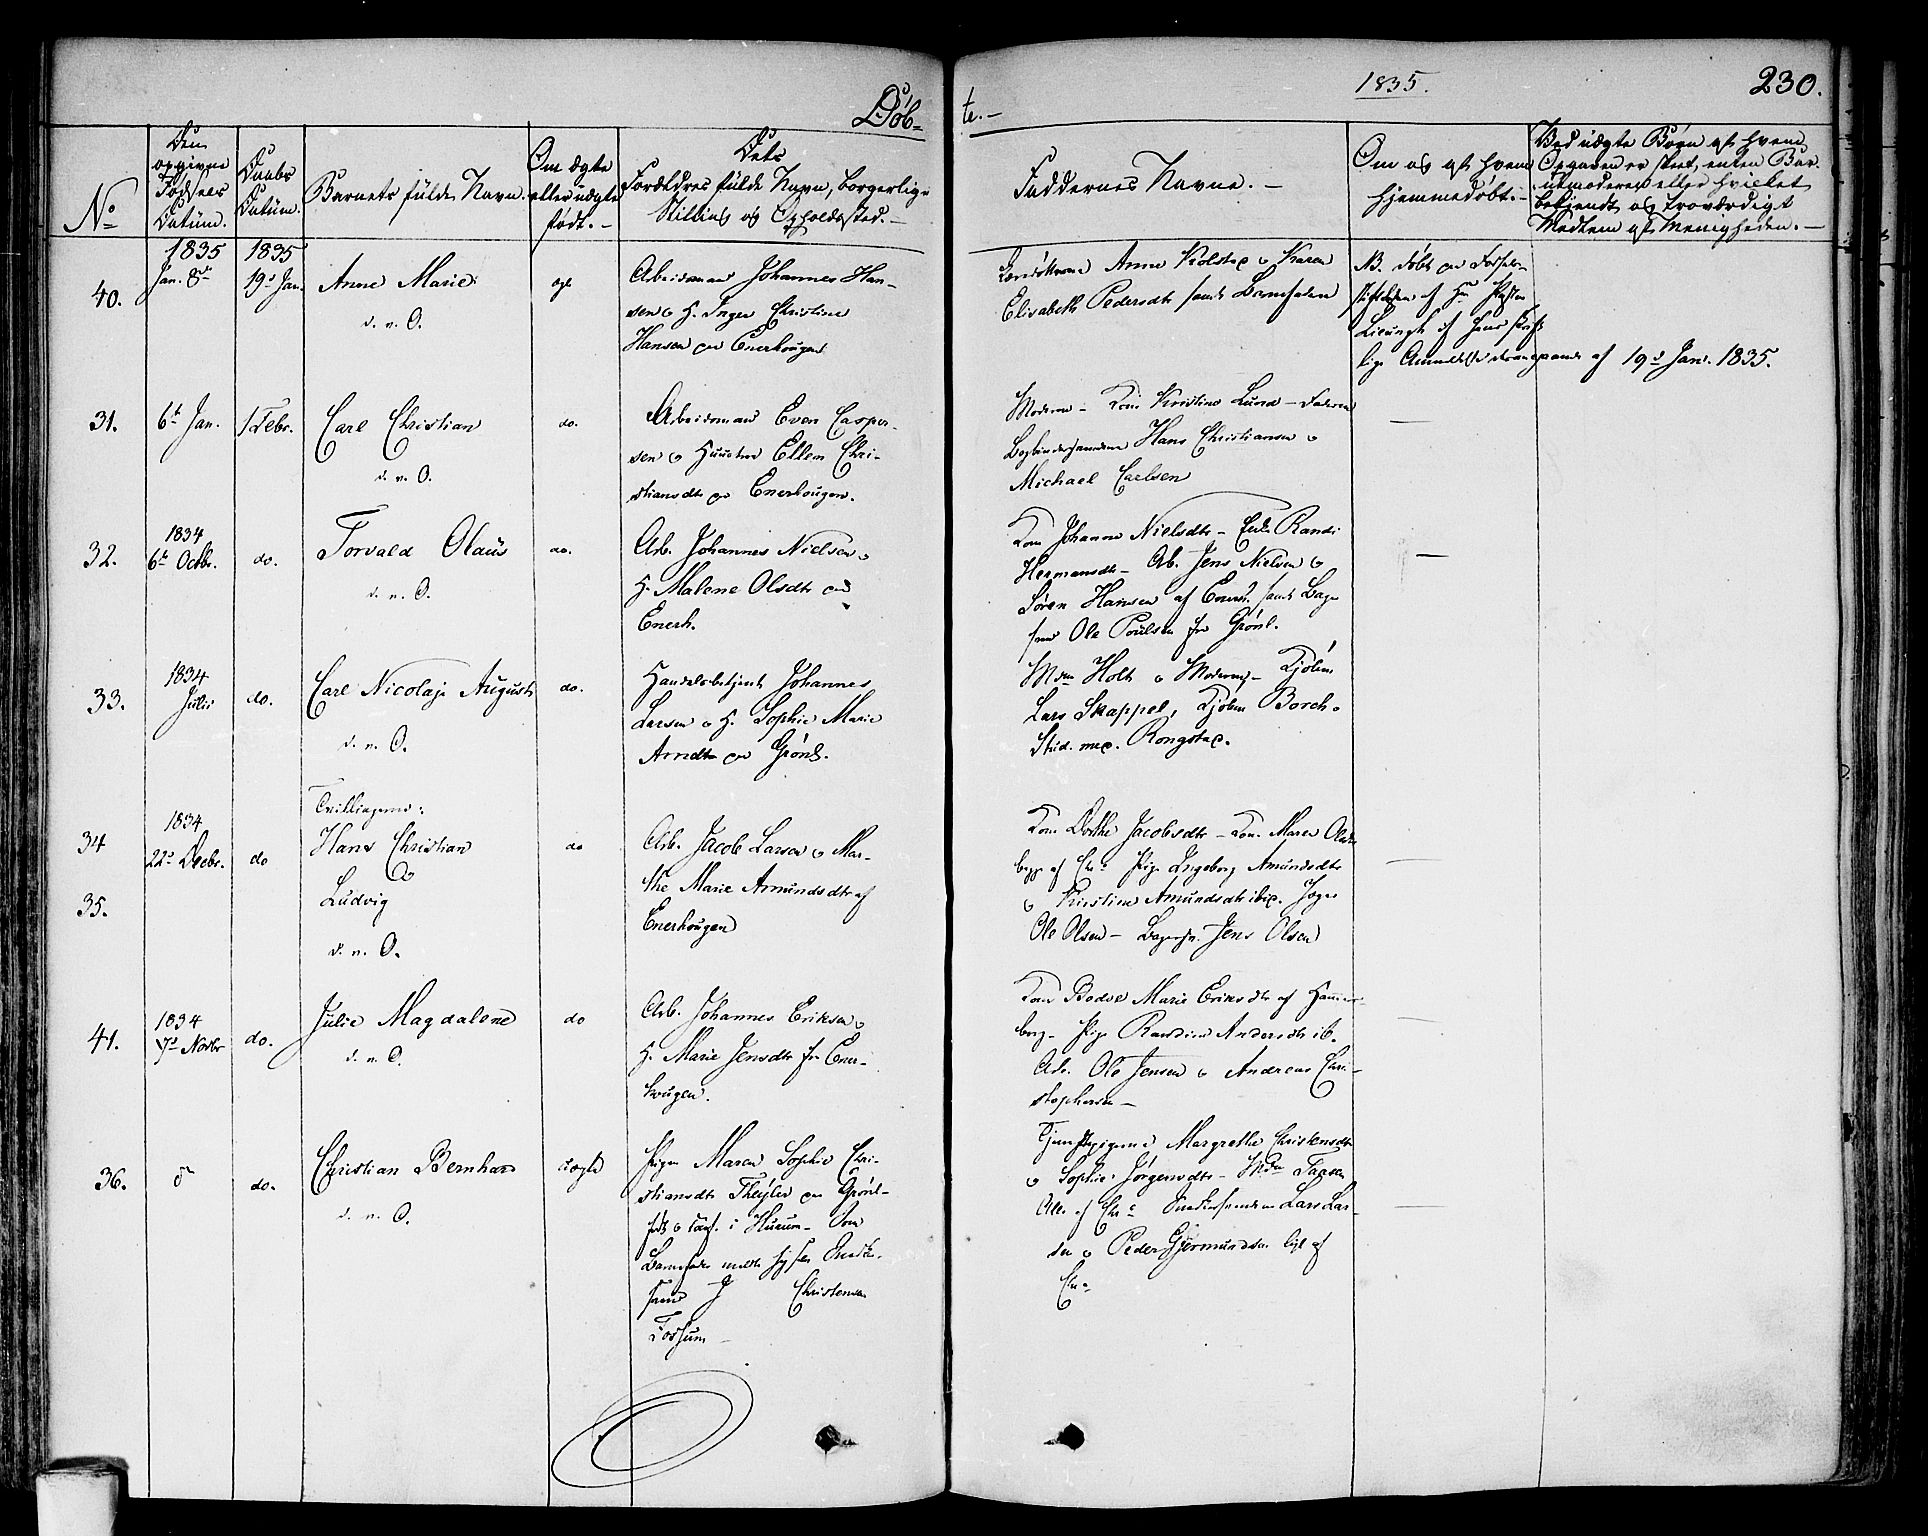 Døb-
te.-
1835.
230.
No
Den opgivne Fødsels Datum.
Daabs Datum.
Barnets fulde Navn.
Om ægte eller uægte født.-
Dets Forældres fulde Navn, borgerlige Stilling og Opholdssted.-
Faddernes Navne.-
Om og af hvem hjemmedøbt.-
Ved uægte Børn af hvem Opgaven er skeet, enten Barnemoderen eller hvilket bekjendt og troværdigt Medlem af Menigheden.-
1835
1835
40.
Jan. 8de
19de Jan.
Anne Marie
d. n. O.
ægt
Arbeidsmand Johannes Han-
sen o H. Inger Christine
Hansen paa Enerhougen
Anne Kolstad o Karen
Elisabeth Pedersdtr samt Barnefaderen
NB. døbt paa Fødsels-
stiftelsen af Hr Pastor
af 19de Jan. 1835.
31.
6te Jan.
1 Febr.
Carl Christian
d. n. O.
do.
Arbeidsmand Even Casper-
sen o Hustrue Ellen Chri-
stiansdtr paa Enerhougen.
Moderen - Kone Kristine Lund - Faderen
Bogbindersvendene Hans Christiansen o
Michael Carlsen
—
32.
1834
6te Octbr.
do.
Torvald Olaus
d. n. O.
do.
Arb. Johannes Nielsen o
H. Malene Olsdtr paa
Enerh.
Kone Johanne Nielsdtr - Enke Randi
Hermansdtr - Ab. Jens Nielsen o
Søren Hansen af Enerh. samt Bager
svend Ole Poulsen fra Grønl.
—
33.
1834
Julii
do.
Carl Nicolaji August
d. n. O.
do.
Handelsbetjent Johannes
Larsen o H. Sophie Marie
Arndtz paa Grønl.
Mdm Holt o Moderen - Kjøbm
Lars Skappel, Kjøbm Borch o
Stud. med. Rongsted.
34
1834
22de Decbr.
do
Tvillingerne:
Hans Christian
&
35.
Ludvig
d. n. O.
do
Arb. Jacob Larsen o Mar-
the Marie Amundsdtr af
Enerhougen
Kone Dorthe Jacobsdtr - Kone Maren Olsdtr
begge af Chra Pige Ingeborg Amundsdtr
o Kirstine Amundsdtr ibid.
Ole Olsen - Bagersv. Jens Olsen
—
41.
1834
7de Novbr
do.
Julie Magdalene
d. n. O.
do
Arb. Johannes Eriksen o
H. Marie Jensdtr fra Ener-
hougen.
Kone Bodel Marie Eriksdtr af Hammers-
borg - Pige Randine Andersdtr ib.
Arb. Ole Jensen o Andreas Chri-
stophersen -
—
36.
do.
Christian Bernhard
d. n. O.
uægte
Pigen Maren Sophie Chri-
stiansdtr Theyler paa Grønl-
født o conf. i Hurum - Som
Barnefader meldte sig selv Snedker-
svend J Christensen
Fossum -
Tjenestepigerne Margrethe Christensdtr
o Sophie Jørgensdtr - Mdm Faasen
Alle af Chra Snedkersvendene Lars Lar-
sen o Peder Gjermundsen lige af
Chra
—